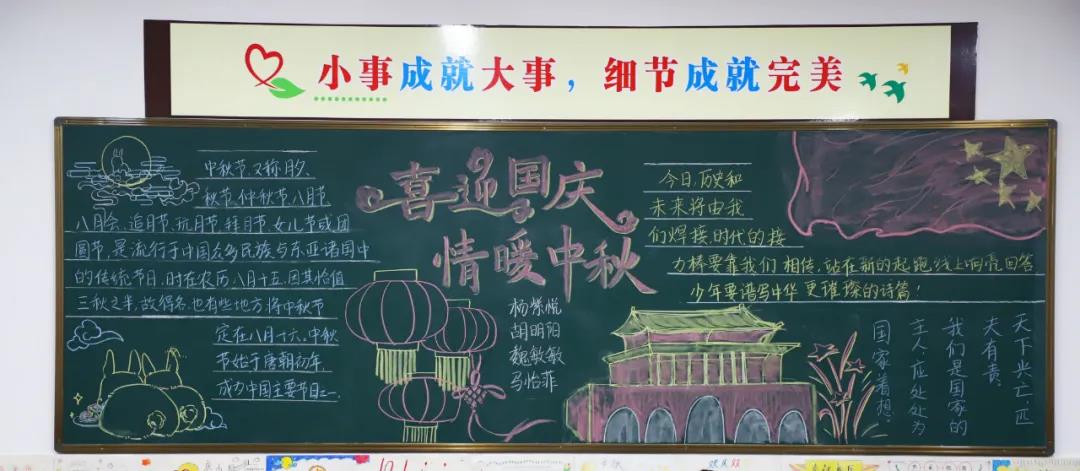 小事成就大事，细节成就完美
中秋节,又称月夕、
秋节、仲秋节、八月节、
八月会、追月节、玩月节、拜月节、女儿节或团
圆节，是流行于中国众多民族与东亚诸国中
的传统节日,时在农历八月十五,因其恰值
三秋之半,故得名,也有些地方将中秋节
定在八月十六。中秋
节始于唐朝初年,
成为中国主要节日之一.
喜迎国庆
情暖中秋
杨紫悦
胡明阳
魏敏敏
马怡菲
今日,历史和
未来将由我
们焊接,时代的接
力棒要靠我们相传,站在新的起跑线上响亮回答
少年要谱写中华更璀璨的诗篇!
天下兴亡,匹
夫有责。
我们是国家的
主人,应处处为
国家着想。